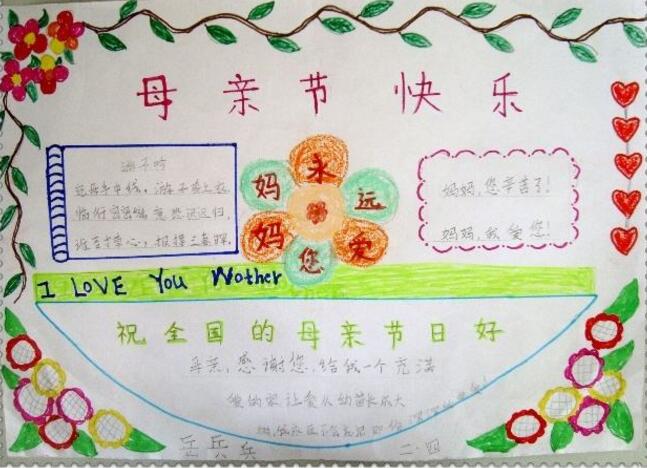 母亲节快乐
游子吟
慈母手中线,游子身上衣,
临行密密缝,意恐迟迟归,
谁言寸草心,报得三春晖。
妈妈永远爱您
妈妈,您辛苦了!
妈妈,我爱您!
I LOVE You Wother
祝全国的母亲节日好
母亲,感谢您,给我一个充满
爱的家,让爱从幼苗长大
二.四